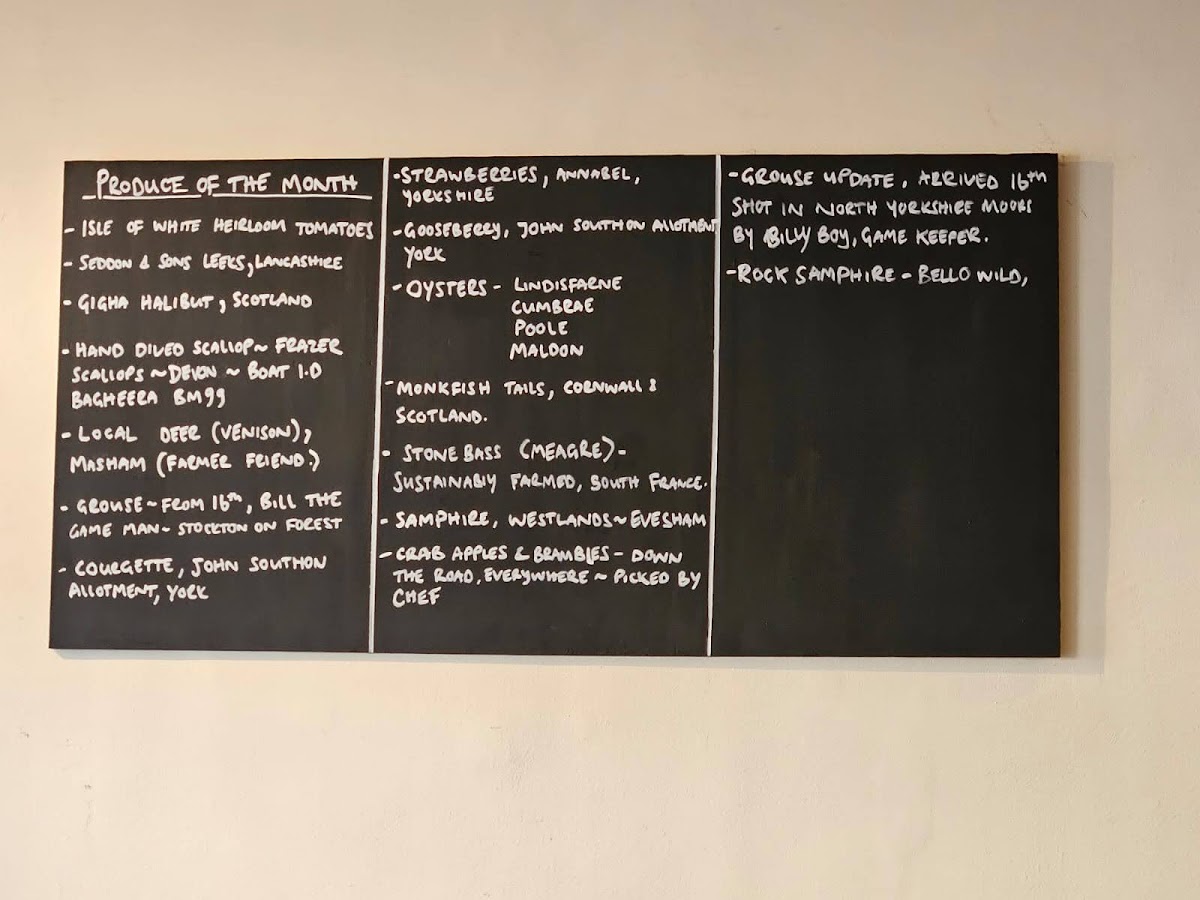 PRODUCE OF THE MONTH
- ISLE OF WHITE HEIRLOOM TOMATOES
- SEDDON & SONS LEEKS, LANCASHIRE
- GIGHA HALIBUT, SCOTLAND
- HAND DIVED SCALLOP ~ FRAZER
SCALLOPS ~ DEVON ~ BOAT I.D
BAGHEERA BM99
- LOCAL DEER (VENISON),
MASHAM (FARMER FRIEND.)
- GROUSE ~ FROM 16th, BILL THE
GAME MAN ~ STOCKTON ON FOREST
- COURGETTE, JOHN SOUTHON
ALLOTMENT, YORK
- STRAWBERRIES, ANNABEL,
YORKSHIRE
- GOOSEBERRY, JOHN SOUTHON ALLOTMENT
YORK
- OYSTERS - LINDISFARNE
CUMBRAE
POOLE
MALDON
- MONKFISH TAILS, CORNWALL &
SCOTLAND.
- STONE BASS (MEAGRE) -
SUSTAINABLY FARMED, SOUTH FRANCE.
- SAMPHIRE, WESTLANDS ~ EVESHAM
- CRAB APPLES & BRAMBLES - DOWN
THE ROAD, EVERYWHERE ~ PICKED BY
CHEF
- GROUSE UPDATE, ARRIVED 16th
SHOT IN NORTH YORKSHIRE MOORS
BY BILLY BOY, GAME KEEPER.
- ROCK SAMPHIRE - BELLO WILD,